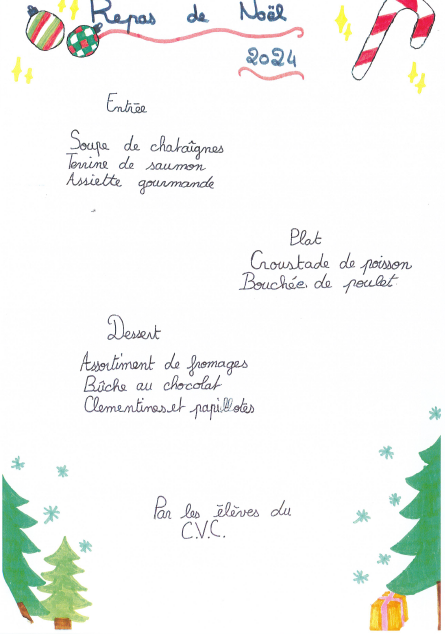 Repas de Noël
2024
Entrée
Soupe de chataîgnes
Terrine de saumon
Assiette gourmande
Plat
Croustade de poisson
Bouchée de poulet
Dessert
Assortiment de fromages
Bûche au chocolat
Clementines et papillotes
Par les élèves du
C.V.C.